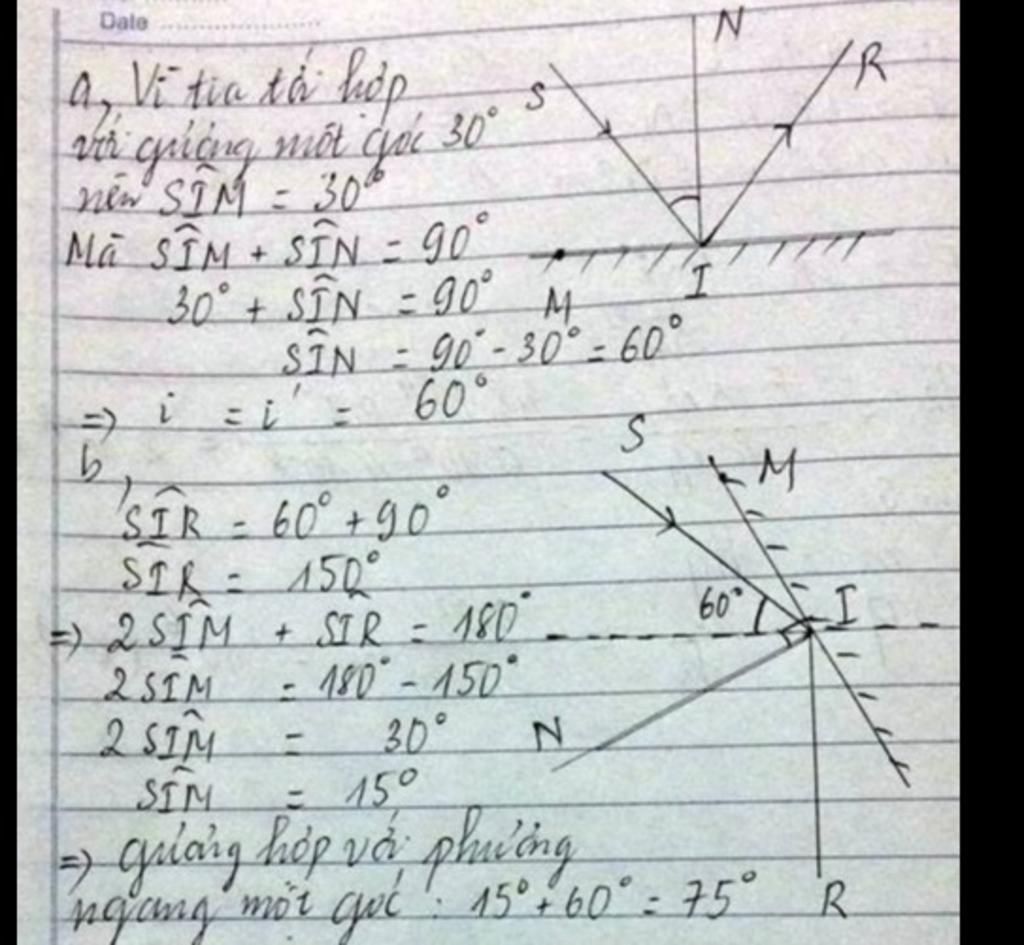 Date
a, Vì tia tới hợp
với gương một góc 30°
nên SÎM = 30°
Mà SÎM + SÎN = 90°
30° + SÎN = 90°
SÎN = 90° - 30° = 60°
=> i = i' = 60°
N
S
R
M
I
b,
SÎR = 60° + 90°
SÎR = 150°
=> 2SÎM + SIR = 180°
2SÎM = 180° - 150°
2SÎM = 30°
SÎM = 15°
=> gương hợp với phương
ngang một góc : 15° + 60° = 75°
S
M
60°
I
N
R